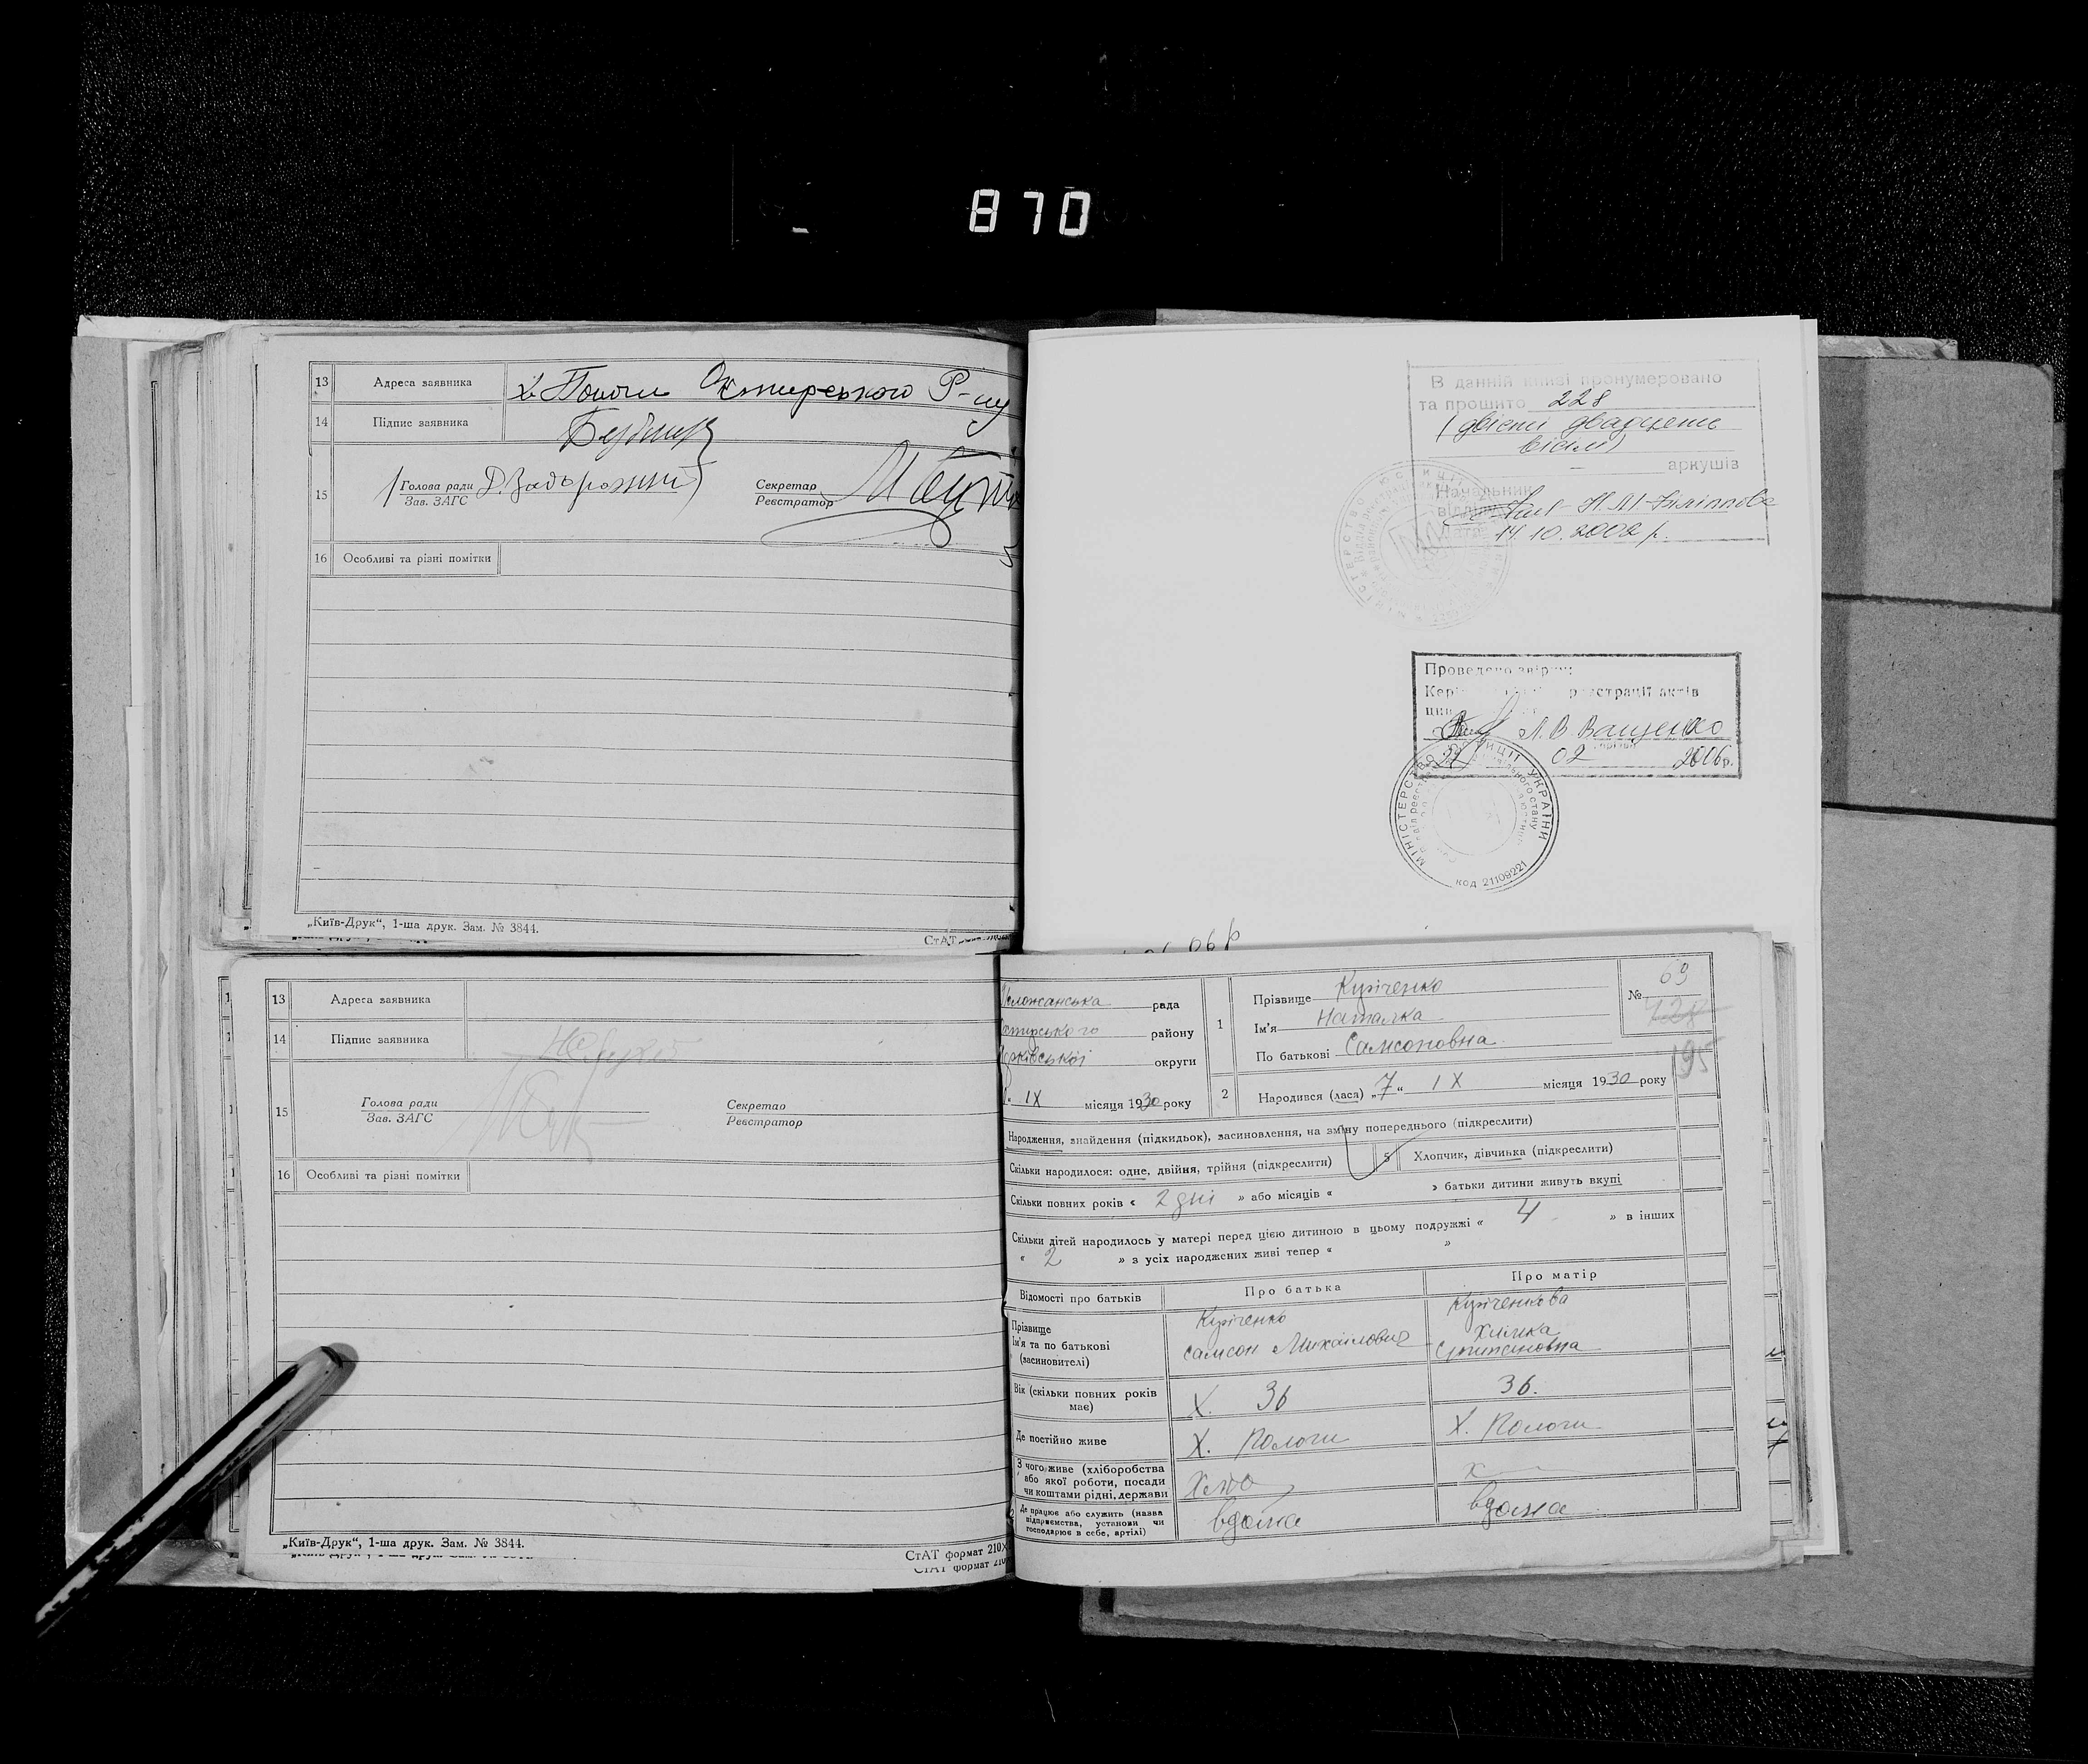 870
13 Адреса заявника х. Пологи Охтирського Р-ну
14 Підпис заявника
15 Голова ради Д. Задорожний Секретар
Зав. ЗАГС Реєстратор
16 Особливі та різні помітки
„Київ-Друк“, 1-ша друк. Зам. № 3844.
СтАТ
В данній книзі пронумеровано
та прошито 228
(двісті двадцять
вісім)
аркушів
Начальник
відділу Н.М. Філіппова
14.10.2002 р.
Проведено звірку
реєстрації актів
Л.В. Ващенко
22 02 2006 р.
МІНІСТЕРСТВО ЮСТИЦІЇ УКРАЇНИ
код 21109221
06 р
13 Адреса заявника
14 Підпис заявника
15 Голова ради Секретар
Зав. ЗАГС Реєстратор
16 Особливі та різні помітки
„Київ-Друк“, 1-ша друк. Зам. № 3844.
СтАТ формат 210×
СтАТ формат 210
рада
району
округи
IX місяця 1930 року
1 Прізвище Куріченко
Ім'я Наталка
По батькові Самсоновна
№ 69
195
2 Народився (лася) „7“ IX місяця 1930 року
Народження, знайдення (підкидьок), засиновлення, на зміну попереднього (підкреслити)
Скільки народилося: одне, двійня, трійня (підкреслити) 5 Хлопчик, дівчинка (підкреслити)
Скільки повних років « 2 дні » або місяців « » батьки дитини живуть вкупі
Скільки дітей народилось у матері перед цією дитиною в цьому подружжі « 4 » в інших
« 2 » з усіх народжених живі тепер « »
Відомості про батьків Про батька Про матір
Прізвище Куріченко Куріченкова
Ім'я та по батькові Самсон Михайлович Химка
(засиновителі)
Вік (скільки повних років має) Х. 36 36.
Де постійно живе Х. Пологи Х. Пологи
З чого живе (хліборобства
або якої роботи, посади
чи коштами рідні, держави
Де працює або служить (назва
підприємства, установи чи
господарює в себе, артілі) вдома вдома